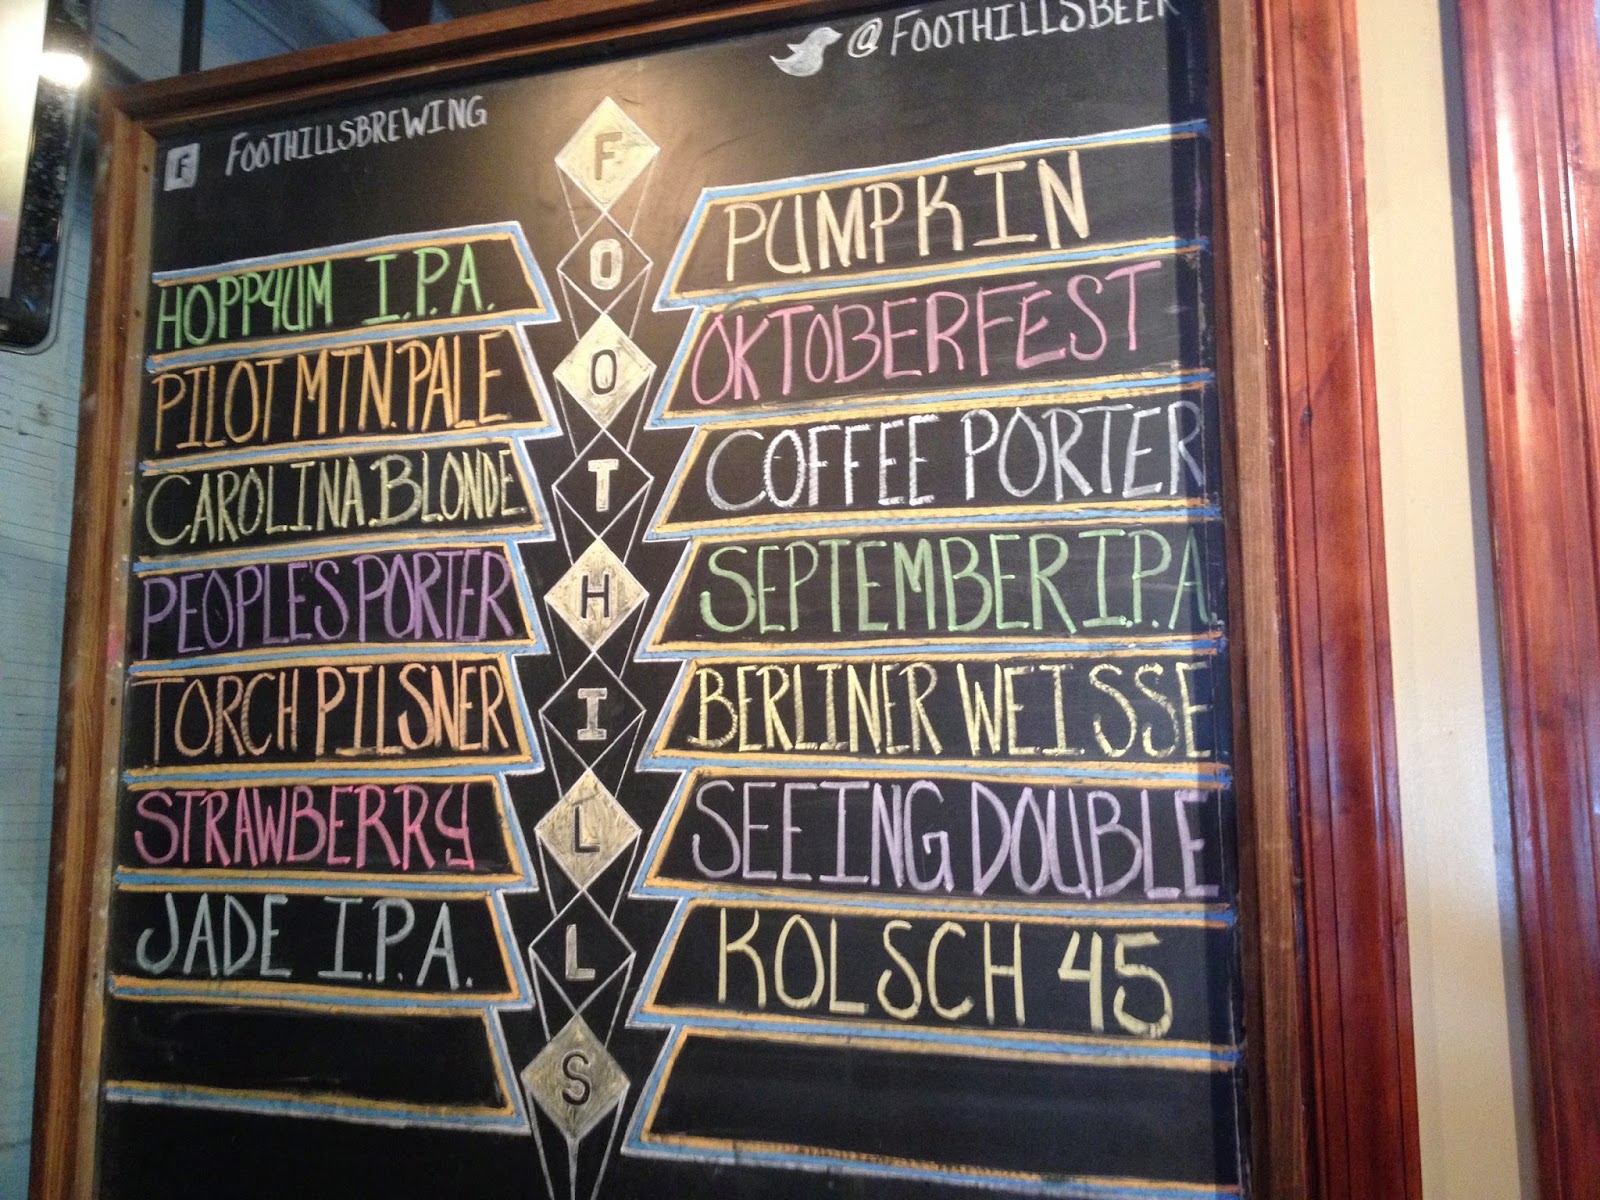 F FOOTHILLSBREWING
@FOOTHILLSBEER
FOOTHILLS
HOPPYUM I.P.A.
PILOT MTN. PALE
CAROLINA BLONDE
PEOPLE'S PORTER
TORCH PILSNER
STRAWBERRY
JADE I.P.A.
PUMPKIN
OKTOBERFEST
COFFEE PORTER
SEPTEMBER I.P.A.
BERLINER WEISSE
SEEING DOUBLE
KOLSCH 45